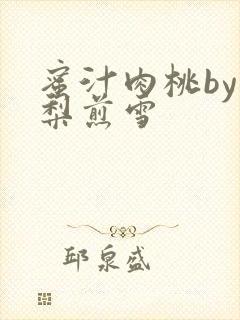 蜜汁肉桃by
梨煎雪
邱泉盛